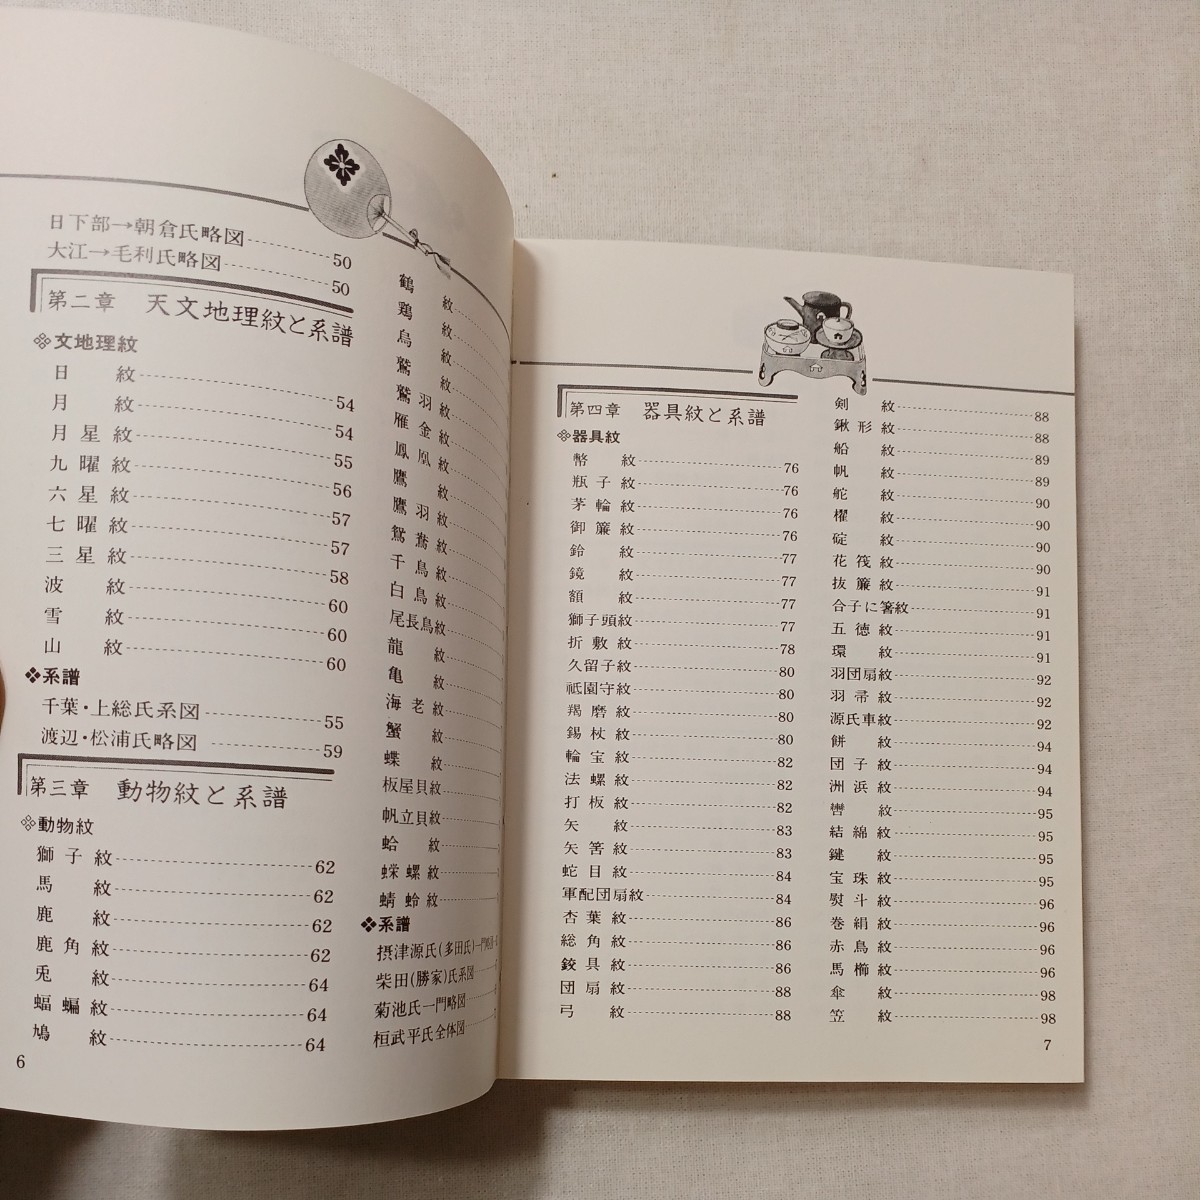 日下部→朝倉氏略図 50
大江→毛利氏略図 50
第二章 天文地理紋と系譜
❖文地理紋
日紋 54
月紋 54
月星紋 55
九曜紋 56
六星紋 57
七曜紋 57
三星紋 58
波紋 60
雪紋 60
山紋 60
❖系譜
千葉・上総氏系図 55
渡辺・松浦氏略図 59
第三章 動物紋と系譜
❖動物紋
獅子紋 62
馬紋 62
鹿紋 62
鹿角紋 62
兎紋 64
蝙蝠紋 64
鳩紋 64
6
鶴紋
鶏紋
鳥紋
鷲紋
鷲羽紋
雁金紋
鳳凰紋
鷹紋
鷹羽紋
鴛鴦紋
千鳥紋
白鳥紋
尾長鳥紋
龍紋
亀紋
海老紋
蟹紋
蝶紋
板屋貝紋
帆立貝紋
蛤紋
蠑螺紋
蜻蛉紋
❖系譜
摂津源氏(多田氏)一門略図
柴田(勝家)氏系図
菊池氏一門略図
桓武平氏全体図
第四章 器具紋と系譜
❖器具紋
幣紋 76
瓶子紋 76
茅輪紋 76
御簾紋 76
鈴紋 77
鏡紋 77
額紋 77
獅子頭紋 77
折敷紋 78
久留子紋 80
祇園守紋 80
羯磨紋 80
錫杖紋 80
輪宝紋 82
法螺紋 82
打板紋 82
矢紋 83
矢筈紋 83
蛇目紋 84
軍配団扇紋 84
杏葉紋 86
総角紋 86
鉸具紋 86
団扇紋 88
弓紋 88
剣紋 88
鍬形紋 88
船紋 89
帆紋 89
舵紋 90
櫂紋 90
碇紋 90
花筏紋 90
抜簾紋 91
合子に箸紋 91
五徳紋 91
環紋 91
羽団扇紋 92
羽帚紋 92
源氏車紋 92
餅紋 94
団子紋 94
洲浜紋 94
轡紋 95
結綿紋 95
鍵紋 95
宝珠紋 95
熨斗紋 96
巻絹紋 96
赤鳥紋 96
馬櫛紋 96
傘紋 98
笠紋 98
7